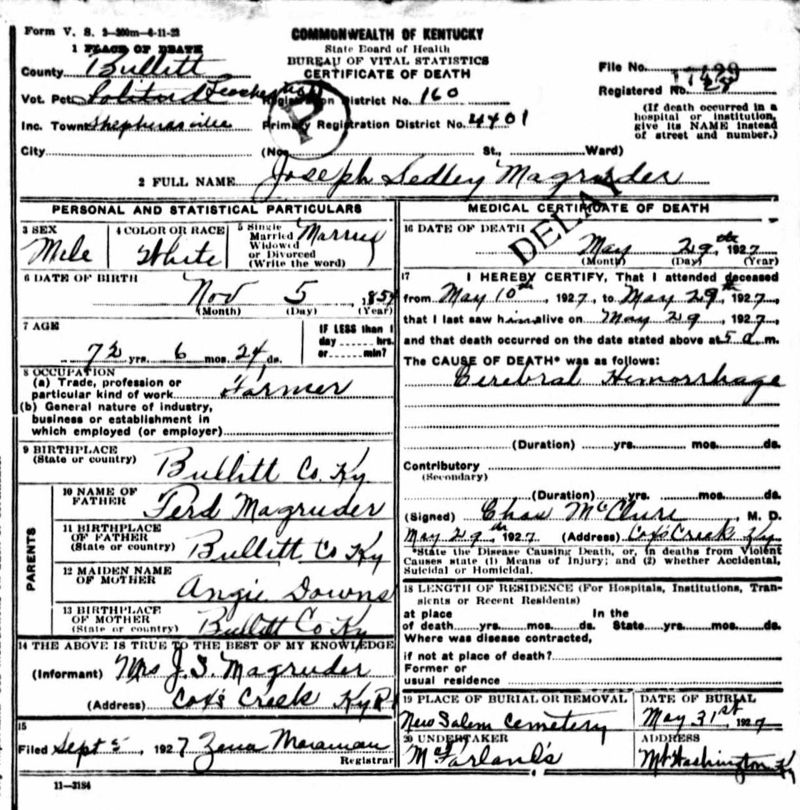 Form V. S. 2-300m-6-11-23
COMMONWEALTH OF KENTUCKY
State Board of Health
BUREAU OF VITAL STATISTICS
CERTIFICATE OF DEATH
1 PLACE OF DEATH
County Bullitt
File No.
Vot. Pct.
Registration District No. 160
Registered No. 28
Inc. Town Shepherdsville
Primary Registration District No. 4401
(If death occurred in a hospital or institution, give its NAME instead of street and number.)
City (No. St., Ward)
P
2 FULL NAME Joseph Sedley Magruder
DELAY
PERSONAL AND STATISTICAL PARTICULARS
3 SEX Male
4 COLOR OR RACE White
5 Single Married Widowed or Divorced (Write the word) Married
6 DATE OF BIRTH
Nov 5, 1854
(Month) (Day) (Year)
7 AGE
72 yrs. 6 mos. 24 ds.
IF LESS than 1 day hrs. or min?
8 OCCUPATION
(a) Trade, profession or particular kind of work Farmer
(b) General nature of industry, business or establishment in which employed (or employer)
9 BIRTHPLACE
(State or country) Bullitt Co. Ky
PARENTS
10 NAME OF FATHER Ferd Magruder
11 BIRTHPLACE OF FATHER (State or country) Bullitt Co Ky
12 MAIDEN NAME OF MOTHER Angie Downs
13 BIRTHPLACE OF MOTHER (State or country) Bullitt Co Ky
14 THE ABOVE IS TRUE TO THE BEST OF MY KNOWLEDGE
(Informant) Mrs J. S. Magruder
(Address) Cox's Creek Ky R1
15
Filed Sept 5, 1927 Zena
Registrar
11-3184
MEDICAL CERTIFICATE OF DEATH
16 DATE OF DEATH
May 29th, 1927
(Month) (Day) (Year)
17 I HEREBY CERTIFY, That I attended deceased
from May 10th, 1927, to May 29th, 1927,
that I last saw him alive on May 29, 1927,
and that death occurred on the date stated above at 5 a.m.
The CAUSE OF DEATH* was as follows:
Cerebral Hemorrhage
(Duration) yrs. mos. ds.
Contributory
(Secondary)
(Duration) yrs. mos. ds.
(Signed) Chas McClure M. D.
May 29th, 1927 (Address) Cox's Creek Ky
*State the Disease Causing Death, or, in deaths from Violent Causes state (1) Means of Injury; and (2) whether Accidental, Suicidal or Homicidal.
18 LENGTH OF RESIDENCE (For Hospitals, Institutions, Transients or Recent Residents)
at place In the
of death yrs. mos. ds. State yrs. mos. ds.
Where was disease contracted,
if not at place of death?
Former or
usual residence
19 PLACE OF BURIAL OR REMOVAL
New Salem Cemetery
DATE OF BURIAL
May 31st, 1927
20 UNDERTAKER
McFarland's
ADDRESS
Mt Washington Ky